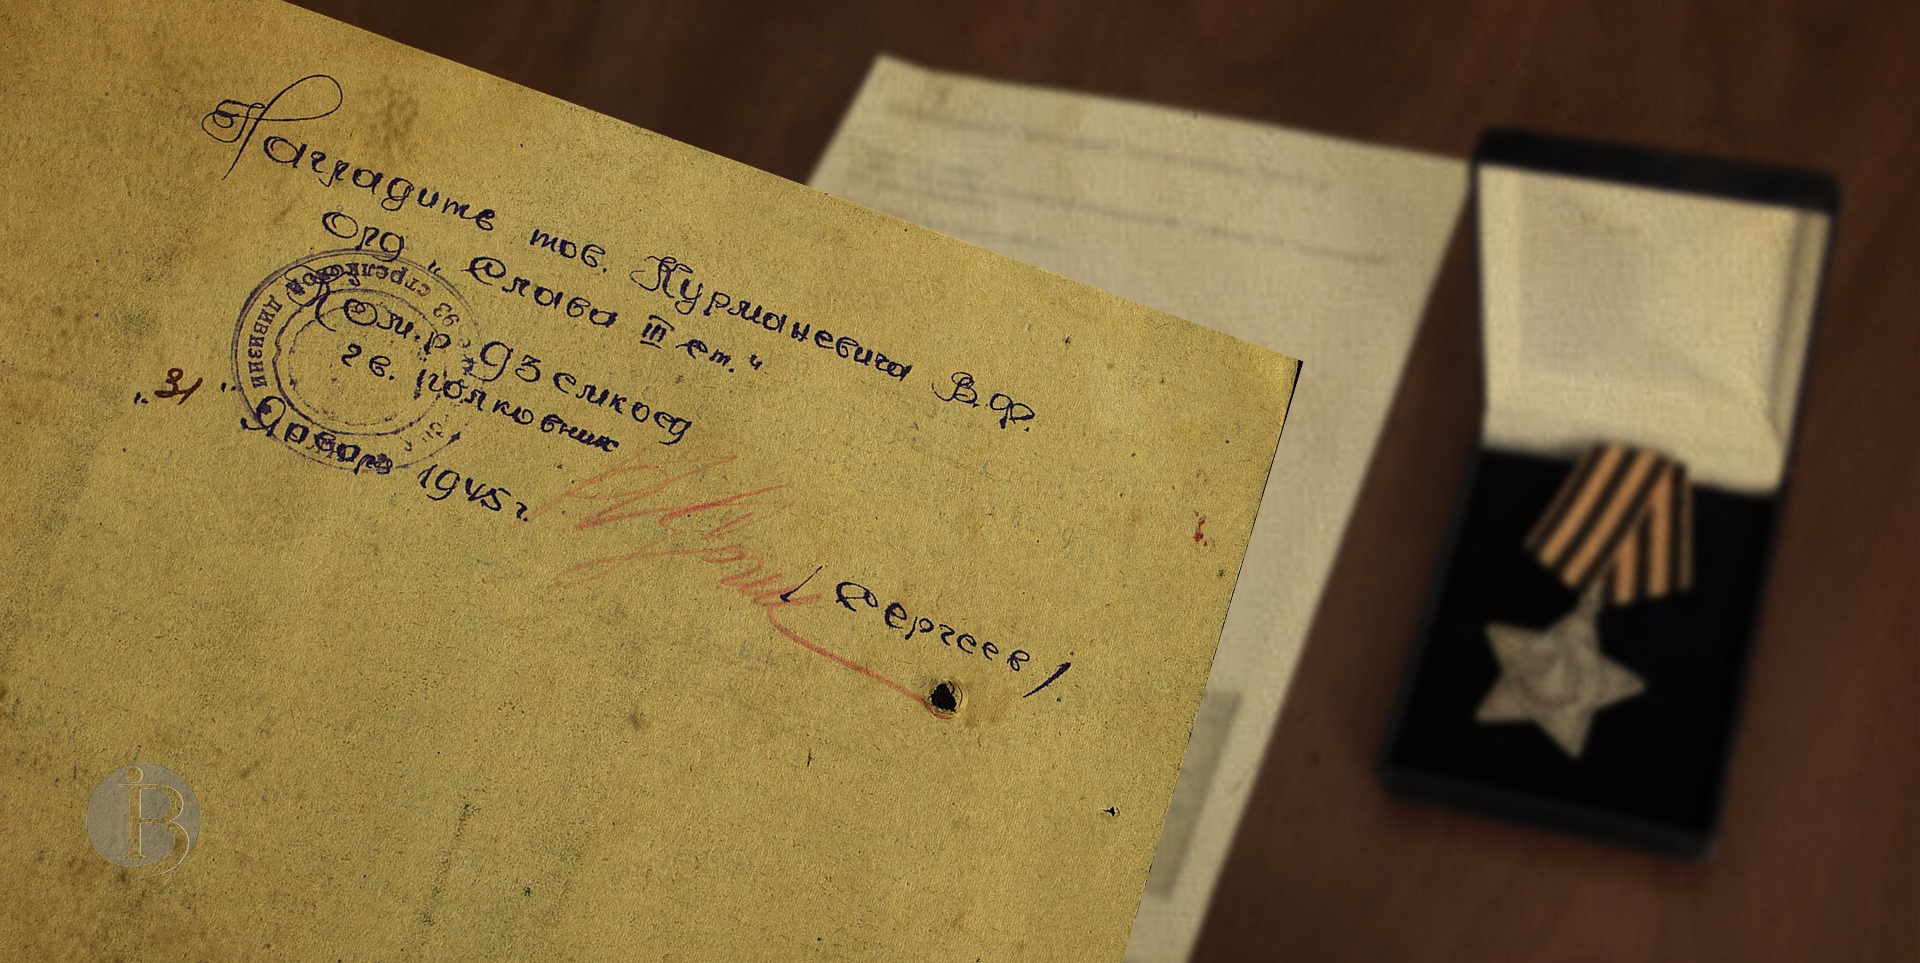 Наградить тов. Курманевича В.Ф.
Орд "Слава III ст."
Ком.р 93 смкосд
гв. полковник
"31" Января 1945 г.
(Сергеев)
93 стрелковой дивизии
iB